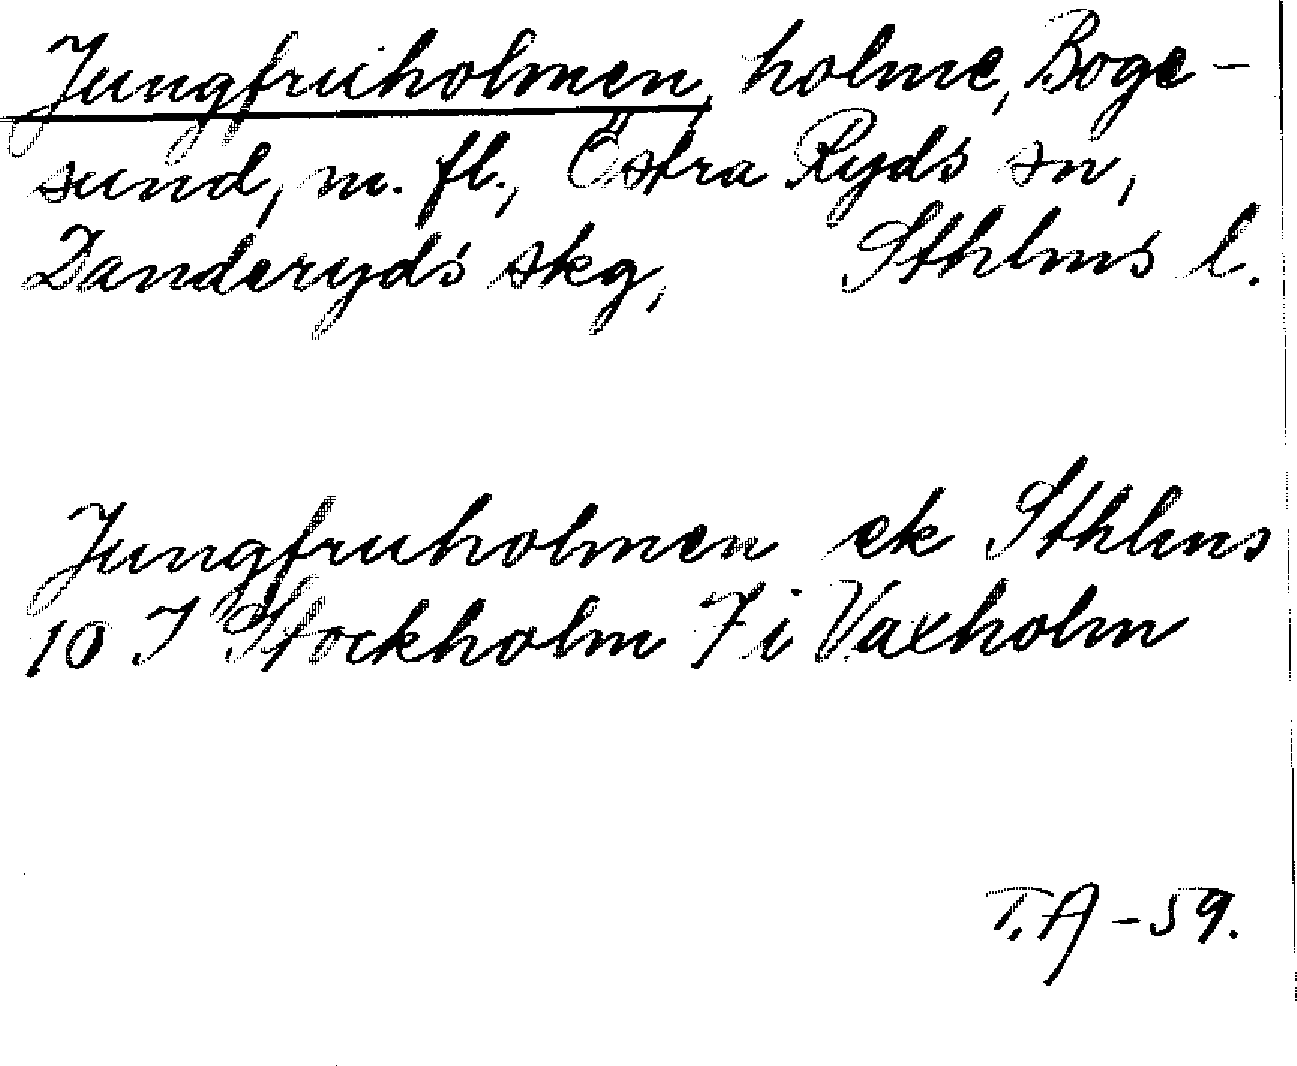 Jungfruholmen, holme, Boge-
sund, m. fl., Östra Ryds sn,
Danderyds skg, Sthlms l.
Jungfruholmen ek Sthlms
10 I Stockholm 7 i Vaxholm
T.A - 59.